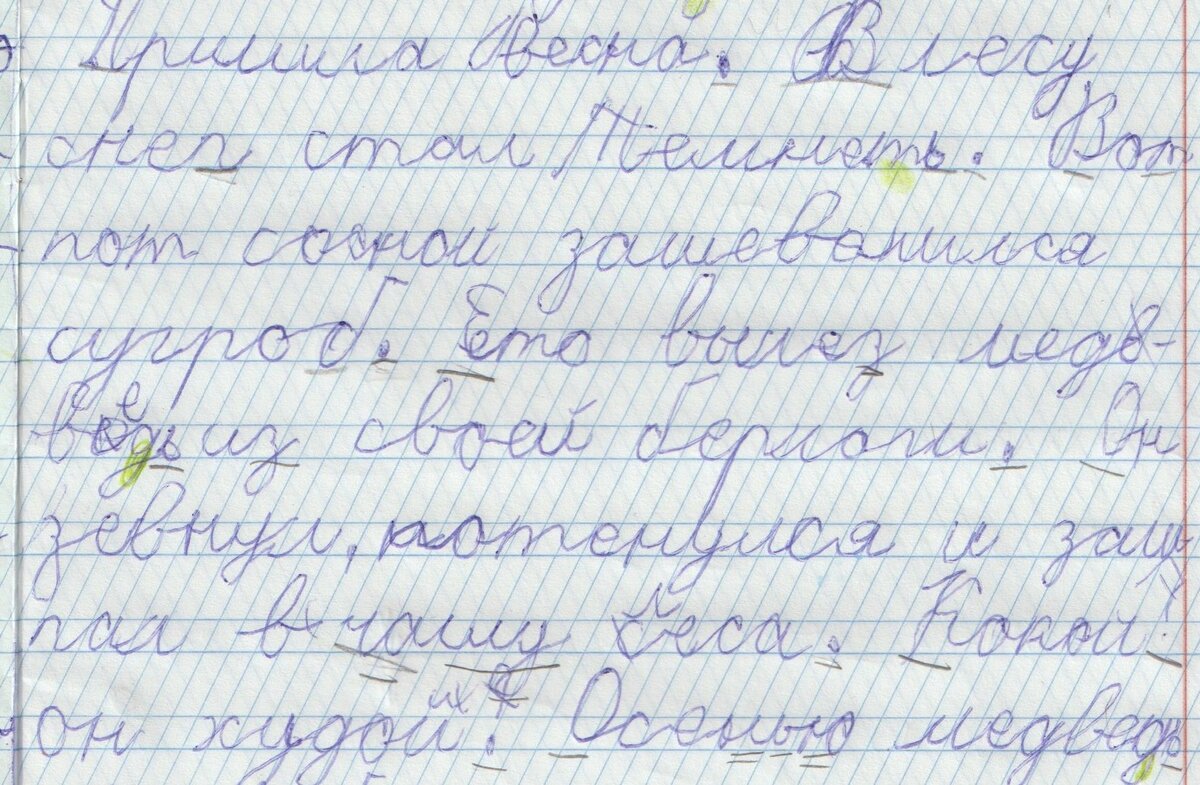 Пришла весна. В лесу
снег стал темнеть. Вот
пот сосной зашевелился
сугроб. Ето вылез медь-
ведь из своей берлоги. Он
зевнул, потенулся и зашы-
пал в чашу леса. Кокой
он худой! Осенью медведь